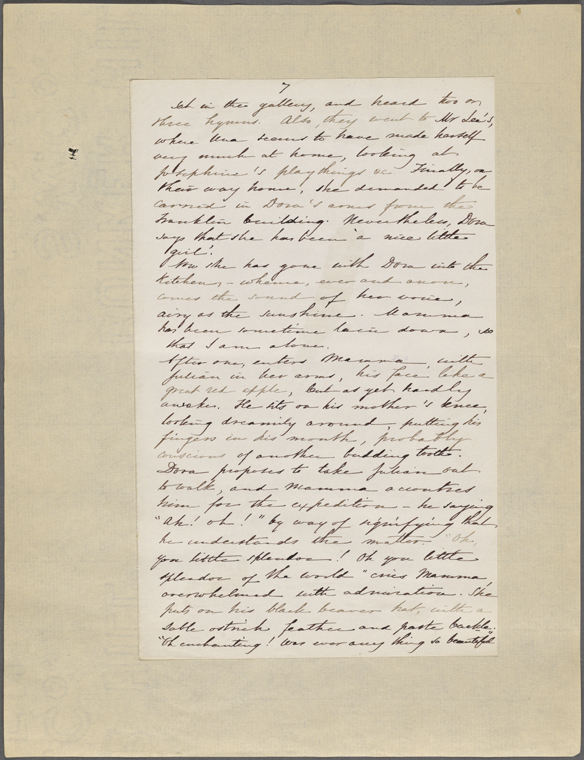 7
sat in the gallery, and heard two or
three hymns. Also, they went to Mr Lee's,
where Una seems to have made herself
very much at home, looking at
Josephine's playthings &c Finally, on
their way home, she demanded to be
carried in Dora's arms from the
Franklin building. Nevertheless, Dora
says that she has been a nice little
girl.
Now she has gone with Dora into the
kitchen, - whence, ever and anon,
comes the sound of her voice,
airy as the sunshine. Mamma
has been sometime lain down, so
that I am alone.
After one, enters Mamma, with
Julian in her arms, his face like a
great red apple, but as yet hardly
awake. He sits on his mother's knee,
looking dreamily around, putting his
fingers in his mouth, probably
conscious of another budding tooth.
Dora proposes to take Julian out
to walk, and Mamma accoutres
him for the expedition - he saying
"Ah! oh!" by way of signifying that
he understands the matter. "Oh,
you little splendor! Oh you little
splendor of the world" cries Mamma,
overwhelmed with admiration. She
puts on his black beaver hat, with a
sable ostrich feather and paste buckle.
"Oh enchanting! Was ever any thing so beautiful